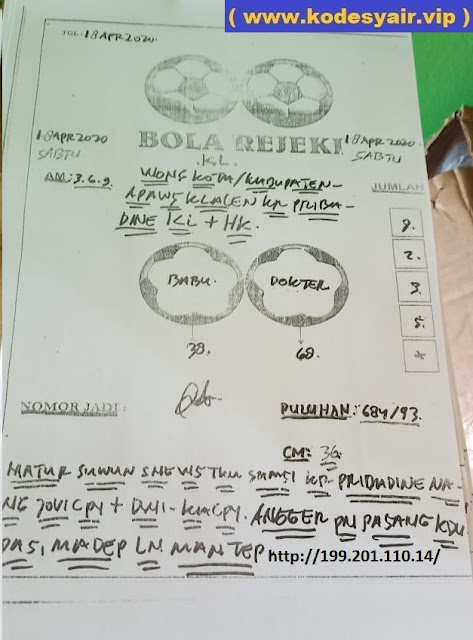 ( www.kodesyair.vip )
TGL: 18 APR 2020
18 APR 2020
SABTU
BOLA REJEKI
18 APR 2020
SABTU
.KL.
AM: 3.6.9
WONG KOTA/KABUPATEN-
JUMLAH
KLATEN KP PRIBA-
DINE KL + HK.
9.
2.
3.
5.
BABU.
DOKTER.
38.
68.
NOMOR JADI :
PULUHAN: 684/93.
CM: 36
MATUR SUWUN
KP. PRIDADINE NA-
ANGGER PN PASANG KDU
PASI MADEP LN MANTEP
http://199.201.110.14/